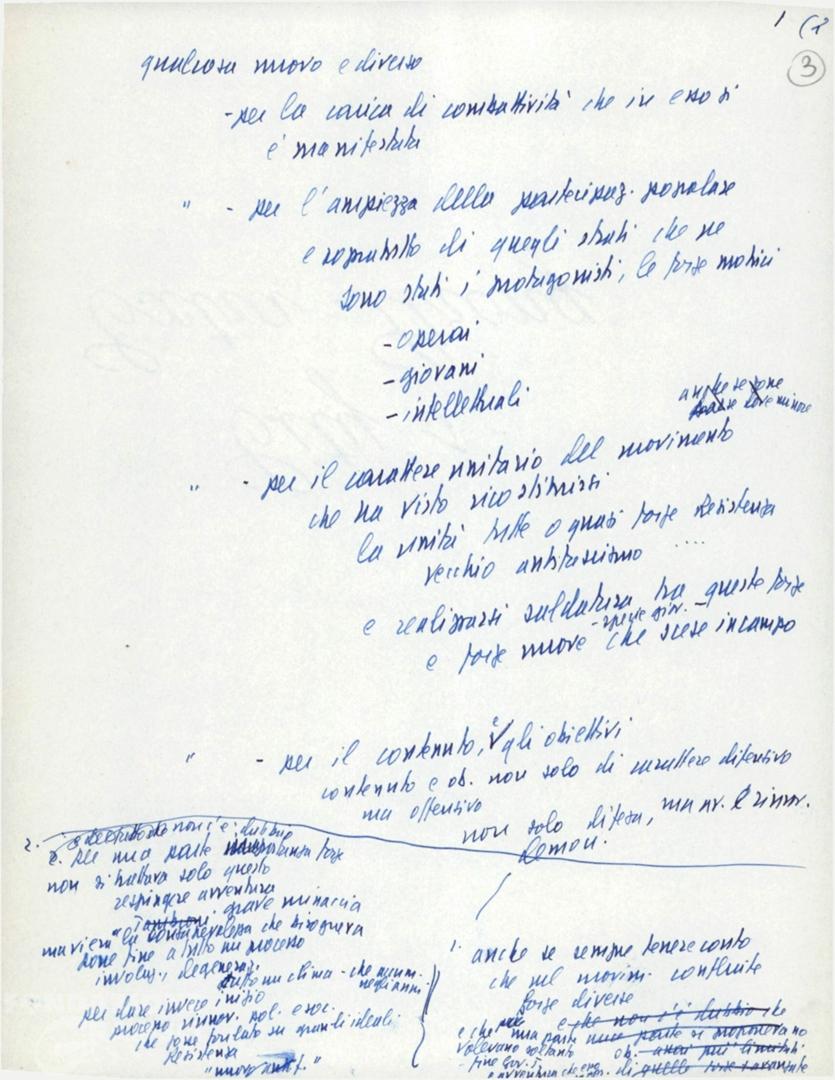 1 (2
3
qualcosa nuovo e diverso
- per la carica di combattività che in esso si
è manifestata
" - per l'ampiezza della partecipaz. popolare
e soprattutto di quegli strati che ne
sono stati i protagonisti, le forze motrici
- operai
- giovani
- intellettuali
anche se
minore
" - per il carattere unitario del movimento
che ha visto ricostituirsi
la unità tutte o quasi forze Resistenza
vecchio antifascismo ....
e realizzarsi saldatura tra queste forze
- specie giov. -
e forze nuove che scese in campo
" - per il contenuto, e gli obiettivi
contenuto e ob. non solo di carattere difensivo
ma offensivo
non solo difesa, ma av. e rinnov.
democr.
2. e del resto non c'è dubbio
2. per una parte forze
non si trattava solo questo
respingere avventura
Tambroni, grave minaccia
ma viera "la consapevolezza che bisognava
porre fine a tutto un processo
involuz., degeneraz.
tutto un clima - che
negli anni
per dare invece inizio
processo rinnov. pol. e soc.
che fosse fondato su grandi ideali
Resistenza
"nuovo antif."
1. anche se sempre tenere conto
che nel movim. confluite
forze diverse
e che per una parte
e che non c'è dubbio che
una parte si proponevano
volevano soltanto
ob. assai più limitati
fine Gov. T.
e avventura che
di quelle forze